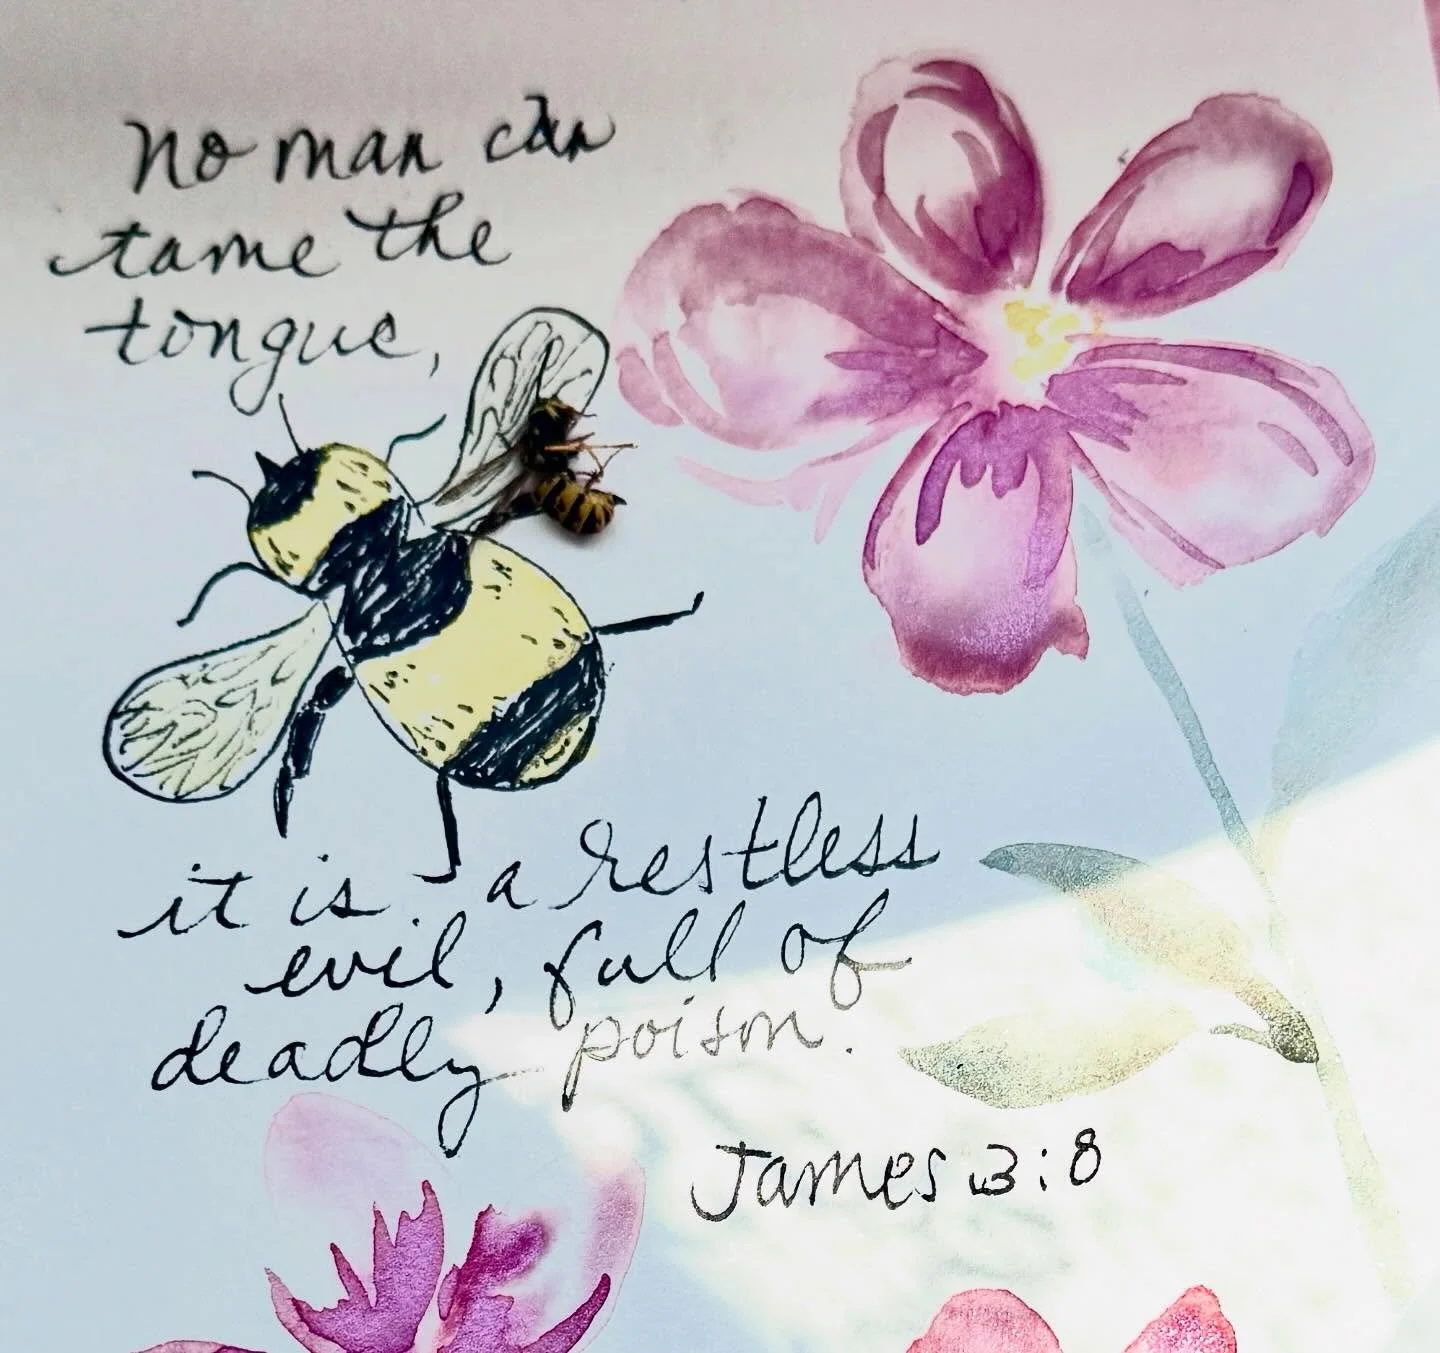 No man can
tame the
tongue,
it is a restless
evil, full of
deadly poison.
James 3:8